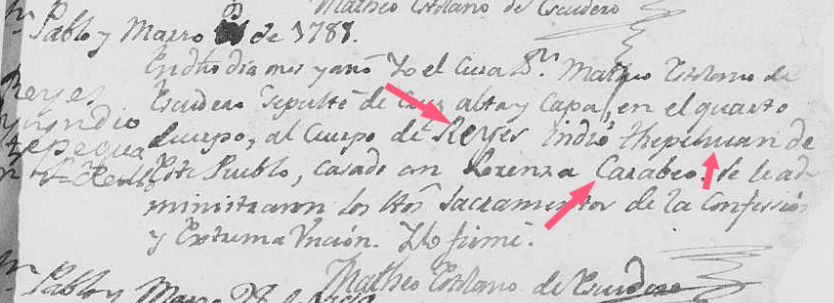 Matheo Solano de Escudero
Sn. Pablo y Marzo de 1788.
En dho dia mes y año Yo el Cura Dn. Matheo Solano de
Reyes Escudero Sepulté de Cruz alta y Capa, en el quarto
indio cuerpo, al Cuerpo de Reyes Indio thepehuan de
tepegua este Pueblo, casado con Lorenza Carabeo. se le ad
ministraron los Stos Sacramentos de la Confession
y Extrema Vncion. Y lo firmé.
Matheo Solano de Escudero
Sn. Pablo y Marzo 28 de